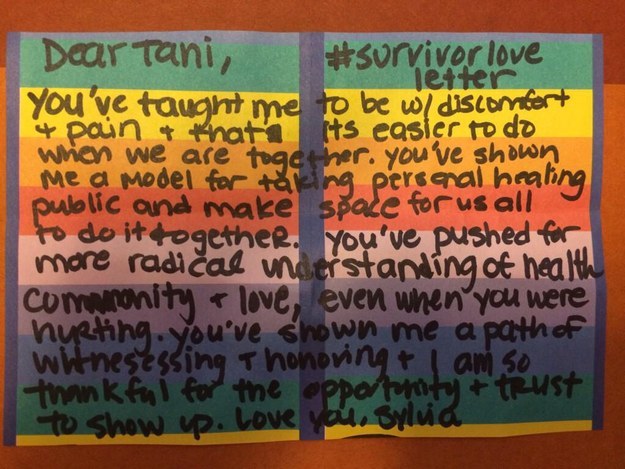 Dear Tani, #survivorlove
letter
you've taught me to be w/ discomfort
+ pain + that its easier to do
when we are together. you've shown
me a model for taking personal healing
public and make space for us all
to do it together. You've pushed for
more radical understanding of health
community + love, even when you were
hurting. you've shown me a path of
witnesessing + honoring + I am so
thankful for the opportunity + trust
to show up. Love you, Sylvia